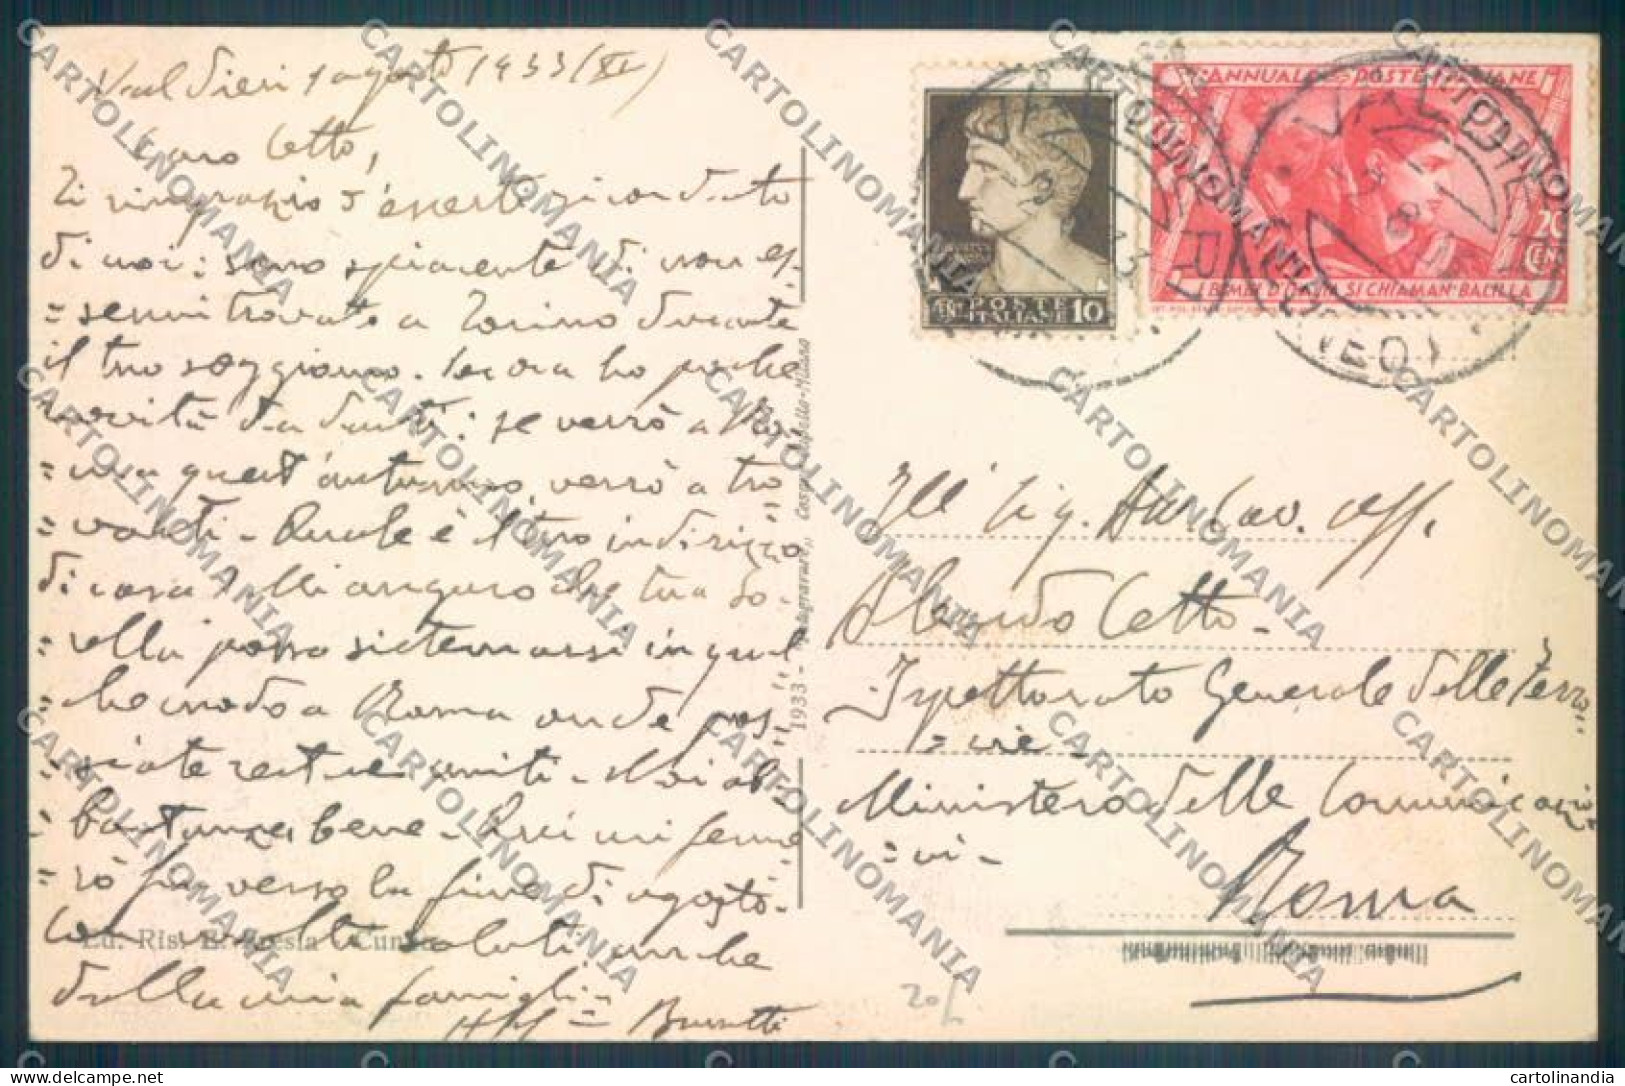 Valdieri 1 agosto 1933 (XI)
Caro Cetto,
Ti ringrazio d'esserti ricordato
di noi: sono spiacente di non es-
= sermi trovato a Torino durante
il tuo soggiorno. Ancora ho poche
novità da darti: se verrò a Ro-
= ma quest'autunno, verrò a tro
= varti - Quale è il tuo indirizzo
di casa? Mi auguro che tua so-
= rella possa sistemarsi in qual
= che modo a Roma onde pos-
= siate restare uniti - Noi ab-
bastanza bene - Qui mi ferme
= rò fin verso la fine di agosto.
Con molti saluti anche
della mia famiglia
Ed. Ris. Cuneo
1933 - Rotogravure,, Cesare Capello - Milano
7° ANNUALE POSTE ITALIANE
20 CENT
I BIMBI D'ITALIA SI CHIAMAN BALILLA
CENT POSTE ITALIANE 10
VALDIERI
(CUNEO)
Ill' Sig. Cav. Uff.
Cetto -
Ispettorato Generale delle Ferro
= vie -
Ministero delle Comunicazio
= ni -
Roma
20
CARTOLINOMANIA
cartolinandia